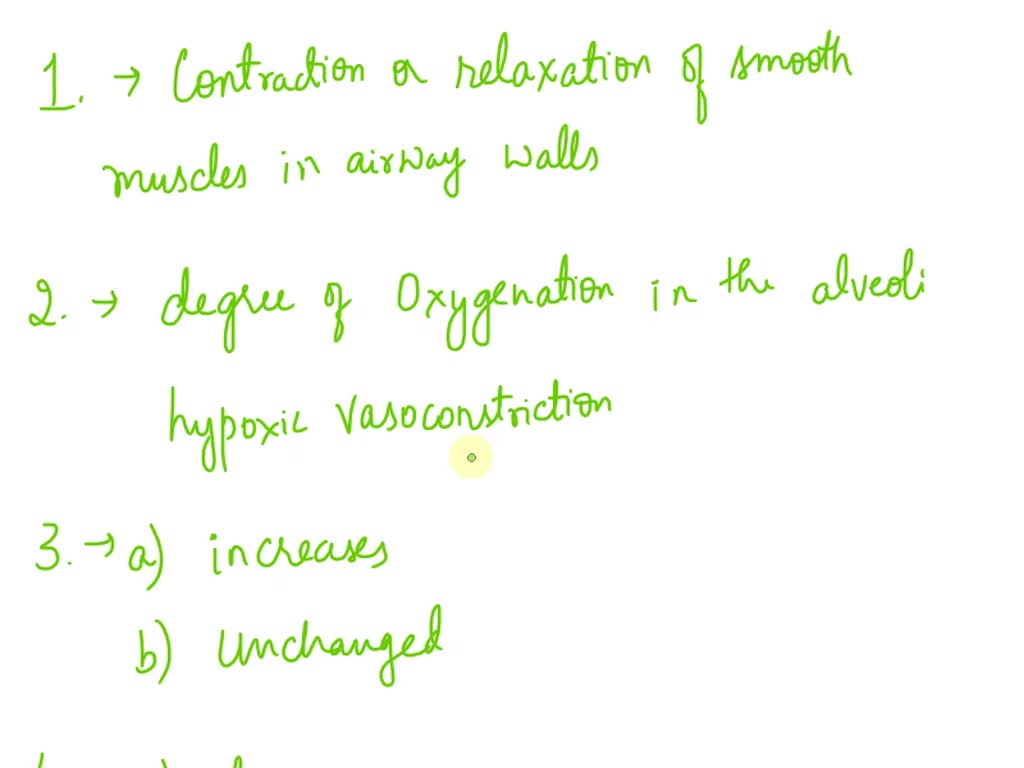 1. → Contraction or relaxation of smooth
muscles in airway walls
2. → degree of Oxygenation in the alveoli
hypoxic vasoconstriction
3. → a) increases
b) Unchanged